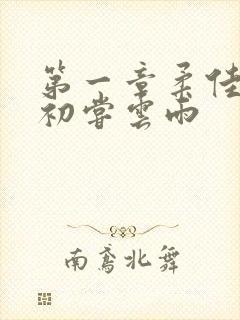 第一章柔佳
初尝雲雨
南鸢北舞